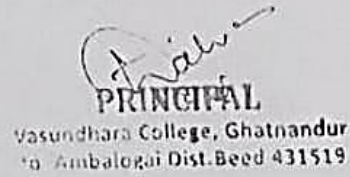 PRINCIPAL
Vasundhara College, Ghatnandur
Ambalogai Dist.Beed 431519